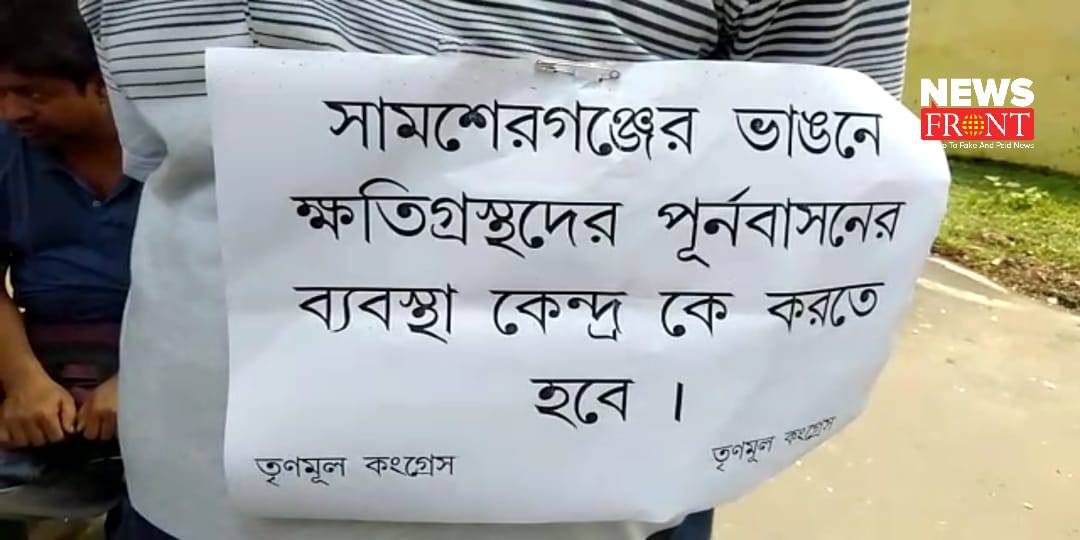 সামশেরগঞ্জের ভাঙনে
ক্ষতিগ্রস্থদের পূর্নবাসনের
ব্যবস্থা কেন্দ্র কে করতে
হবে ।
তৃণমূল কংগ্রেস
তৃণমূল কংগ্রেস
NEWS
FRONT
To Fake And Paid News